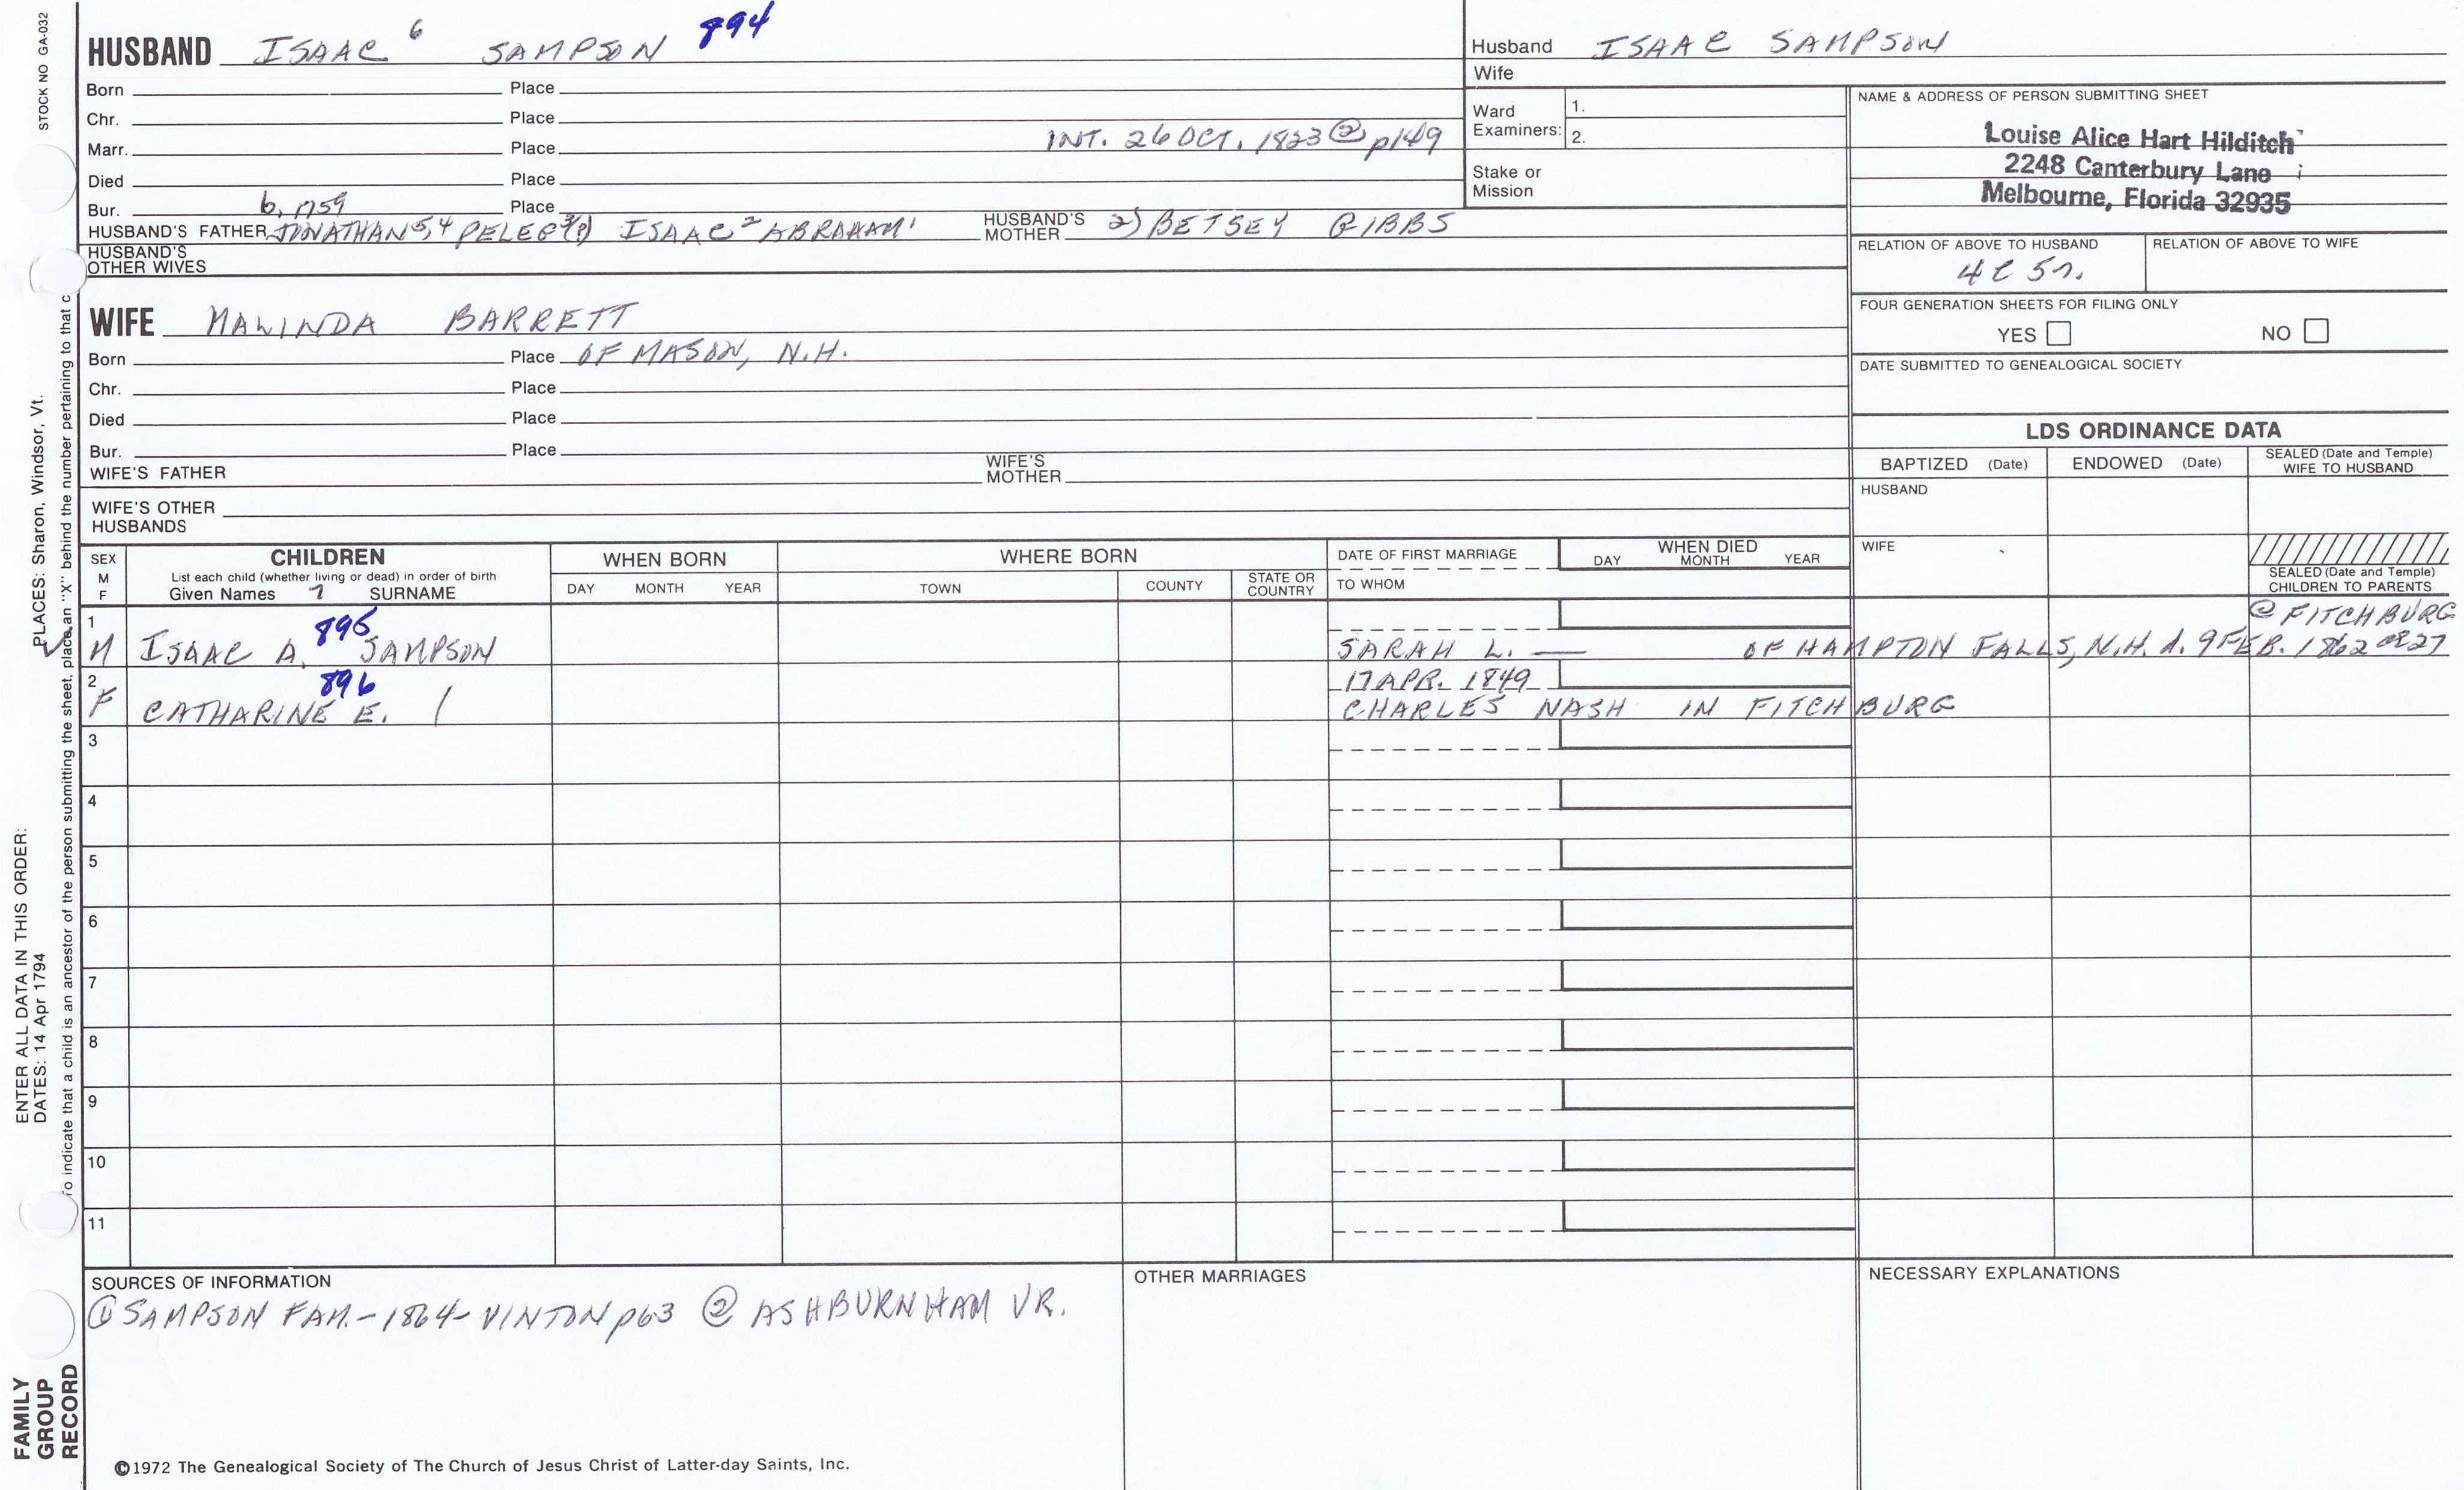 STOCK NO GA-032
HUSBAND ISAAC 6 SAMPSON 894
Born Place
Chr. Place
Marr. Place INT. 26 OCT. 1823 ② p149
Died Place
Bur. Place
b. 1759
HUSBAND'S FATHER JONATHAN 5,4 PELEG ISAAC 2 ABRAHAM 1 HUSBAND'S MOTHER 2) BETSEY GIBBS
HUSBAND'S OTHER WIVES
WIFE MALINDA BARRETT
Born Place OF MASON, N.H.
Chr. Place
Died Place
Bur. Place
WIFE'S FATHER WIFE'S MOTHER
WIFE'S OTHER HUSBANDS
Husband ISAAC SAMPSON
Wife
Ward Examiners: 1.
2.
Stake or Mission
NAME & ADDRESS OF PERSON SUBMITTING SHEET
Louise Alice Hart Hilditch
2248 Canterbury Lane
Melbourne, Florida 32935
RELATION OF ABOVE TO HUSBAND RELATION OF ABOVE TO WIFE
4C 5r.
FOUR GENERATION SHEETS FOR FILING ONLY
YES NO
DATE SUBMITTED TO GENEALOGICAL SOCIETY
LDS ORDINANCE DATA
BAPTIZED (Date) ENDOWED (Date) SEALED (Date and Temple) WIFE TO HUSBAND
HUSBAND
WIFE
SEALED (Date and Temple) CHILDREN TO PARENTS
SEX M F
CHILDREN
List each child (whether living or dead) in order of birth
Given Names 7 SURNAME
WHEN BORN
DAY MONTH YEAR
WHERE BORN
TOWN COUNTY STATE OR COUNTRY
DATE OF FIRST MARRIAGE
TO WHOM
WHEN DIED
DAY MONTH YEAR
1 895 @ FITCHBURG
M ISAAC A. SAMPSON SARAH L. — OF HAMPTON FALLS, N.H. d. 9 FEB. 1862 ae27
2 896 17 APR. 1849
F CATHARINE E. / CHARLES NASH IN FITCHBURG
3
4
5
6
7
8
9
10
11
SOURCES OF INFORMATION
① SAMPSON FAM.-1864-VINTON p63 ② ASHBURNHAM VR.
OTHER MARRIAGES
NECESSARY EXPLANATIONS
©1972 The Genealogical Society of The Church of Jesus Christ of Latter-day Saints, Inc.
FAMILY GROUP RECORD
ENTER ALL DATA IN THIS ORDER:
DATES: 14 Apr 1794
PLACES: Sharon, Windsor, Vt.
To indicate that a child is an ancestor of the person submitting the sheet, place an "X" behind the number pertaining to that c